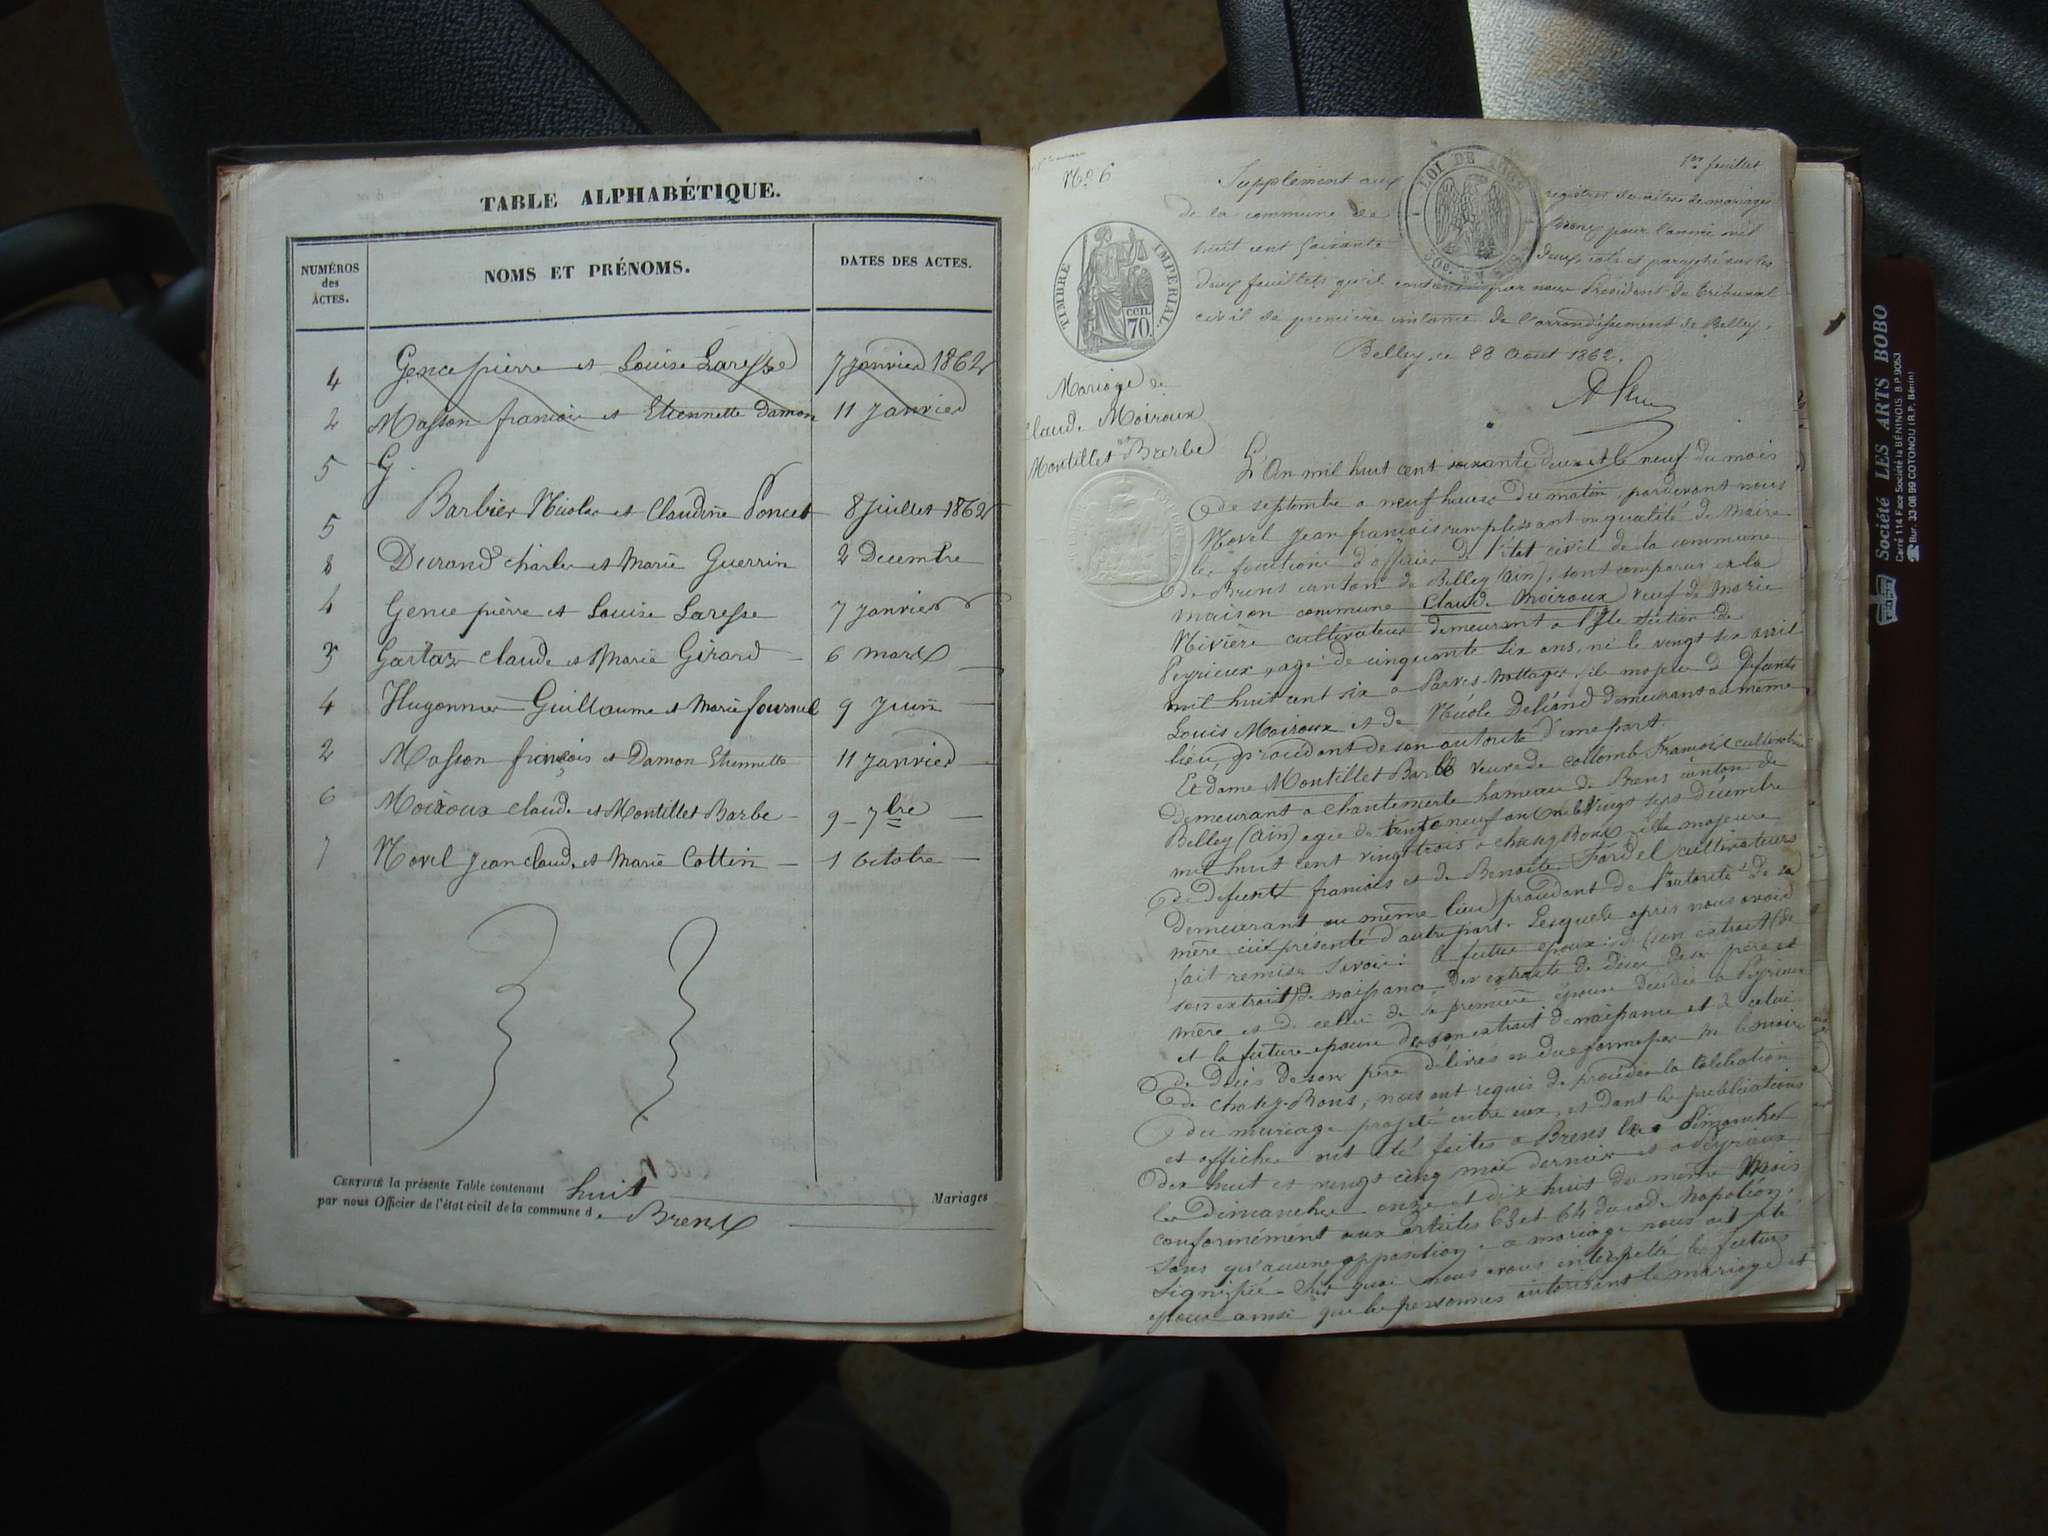 TABLE ALPHABÉTIQUE.
NUMÉROS
des
ACTES.
NOMS ET PRÉNOMS.
DATES DES ACTES.
4 Gence pierre et Louise Laresse 7 janvier 1862
2 Masson francois et Etiennette Damon 11 Janvier
5 G
5 Barbier Nicolas et Claudine Poncet 8 Juillet 1862
8 Durand charles et Marie Guerrin 2 Decembre
4 Gence pierre et Louise Laresse 7 janvier
3 claude et Marie Girard 6 mars
4 Hugonnier Guillaume et Marie 9 Juin
2 Masson françois et Damon Etiennette 11 Janvier
6 Moiroux claude et Montillet Barbe 9 7bre
7 Novel Jean claude et Marie Cottin 1 Octobre
CERTIFIÉ la présente Table contenant huit Mariages
par nous Officier de l'état civil de la commune de Brens
No 6
1er feuillet
Supplément aux registres des actes de mariages
de la commune de Brens pour l'année mil
huit cent soixante deux coté et paraphé sur les
deux feuillets qu'il contient par nous Président du Tribunal
civil de première instance de l'arrondissement de Belley.
Belley, le 28 Aout 1862.
LOI DE 1862
TIMBRE IMPÉRIAL.
CEN.
70.
Mariage de
Claude Moiroux
et
Montillet Barbe
L'An mil huit cent soixante deux et le neuf du mois
de septembre a neuf heures du matin, pardevant nous
Novel Jean francois remplissant en qualité de Maire
les fonctions d'officier de l'état civil de la commune
de Brens canton de Belley (ain), sont comparus en la
maison commune Claude Moiroux veuf de Marie
Nivière cultivateur demeurant a l'Isle section de
Peyrieux, agé de cinquante six ans, né le vingt six avril
mil huit cent six a Parves-Nattages, fils majeur de defunts
Louis Moiroux et de Nicole demeurant au même
lieu, procédant de son autorité d'une part.
Et dame Montillet Barbe veuve de collomb François cultivatrice
demeurant a Chantemerle hameau de Brens canton de
Belley (Ain) agée de trente neuf ans née le vingt sept décembre
mil huit cent vingt trois a chazey Bons, fille majeure
de defunt francois et de Benoite Fardel cultivateurs
demeurant au même lieu procédant de l'autorité de sa
mère ici présente d'autre part. Lesquels après nous avoir
fait remise savoir: le futur epoux de (son extrait) de
son extrait de naissance, des extraits de décès de ses père et
mère et de celui de sa première épouse décédée a Peyrieux
et la future epouse de son extrait de naissance et de celui
de décès de son père délivrés en due forme par Mr le maire
de Chazey-Bons, nous ont requis de procéder a la célébration
du mariage projeté entre eux, et dont les publications
et affiches ont été faites a Brens les Dimanches
dix huit et vingt cinq mai dernier et a Peyrieux
les Dimanches onze et dix huit du même Mois
conformément aux articles 63 et 64 du code Napoléon,
sans qu'aucune opposition a ce mariage nous ait été
signifiée. Sur quoi nous avons interpellé les futurs
epoux ainsi que les personnes autorisant le mariage et
Société LES ARTS BOBO
Carré 114 Face Société la BÉNINOIS. B.P. 9053
Bur. 33 08 99 COTONOU (R.P. Bénin)